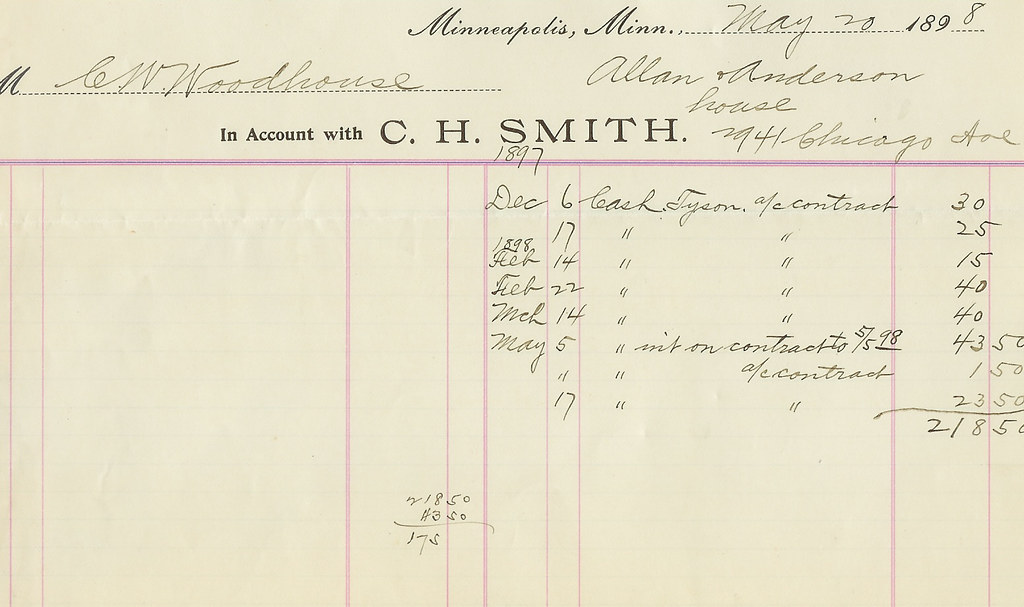 Minneapolis, Minn., May 20 1898
M C. W. Woodhouse
Allan & Anderson
house
In Account with C. H. SMITH. 2941 Chicago Ave
1897
Dec 6 Cash Tyson. a/c contract 30
17 " " 25
1898
Feb 14 " " 15
Feb 22 " " 40
Mch 14 " " 40
May 5 " int on contract to 5/5 98 43 50
" " a/c contract 1 50
17 " " 23 50
218 50
218 50
43 50
175